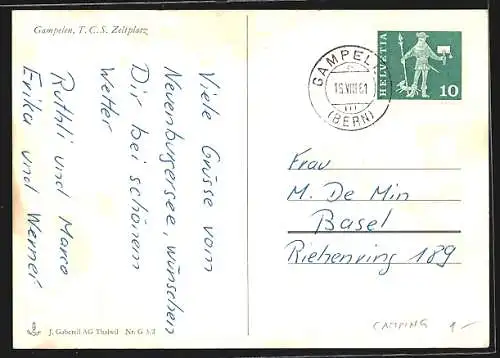 Gampelen, T. C. S. Zeltplatz
Viele Grüsse vom
Neuenburgersee, wünschen
Dir bei schönem
Wetter
Ruthli und Marco
Erika und Werner
J. Gaberell AG Thalwil Nr. G 5/2
GAMPEL
15.VIII.61
(BERN)
HELVETIA
10
Frau
M. De Min
Basel
Riehenring 189
CAMPING 1.-